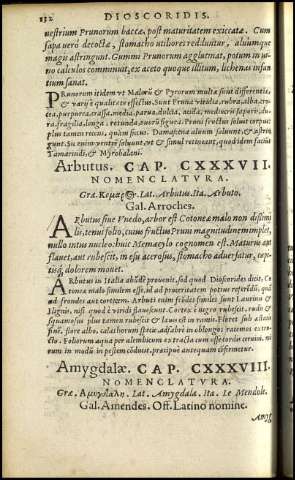 132 DIOSCORIDIS.
nestrium Prunorum baccæ, post maturitatem exiccatæ. Cum
sapa verò decoctæ, stomacho utiliores redduntur, aluúmque
magis astringunt. Gummi Prunorum agglutinat, potum in ui-
no calculos comminuit, ex aceto quoque illitum, lichenas infan
tium sanat.
PRunorum itidem vt Malorũ & Pyrorum multæ sunt differentiæ,
& variæ qualitates effectus. Sunt Pruna viridia, rubra, alba, ci-
tra, purpurea, crassa, media, parua, dulcia, acida, mediocris saporis, du
ra, fragilia, longa, rotunda, suauis siguræ. Pruni fructus soluet corpus
plus tamen recens, quàm siccus. Damascena aluum soluunt, & astrin
gunt. Siquidem ventrē soluunt, vt & simul retineant, quod idem faciũt
Tamarindi, & Myrobalani.
Arbutus. CAP. CXXXVII.
NOMENCLATVRA.
Græ. Κόμαρος. Lat. Arbutus. Ita. Arbuto.
Gal. Arroches.
ARbutus siue Vnedo, arbor est Cotoneæ malo non dissimi
lis, tenui folio, cuius fructus Pruni magnitudinem implet,
nullo intus nucleo, huic Memæcylo cognomen est. Maturus aut
flauet, aut rubescit, in esu acerosus, stomacho aduersatur, cap-
tisq́; dolorem mouet.
ARbutus in Italia abũdè prouenit, sed quod Dioscorides dicit, Co
toneæ malo similem esse, id ad proceritatem potius referēdũ, quã
ad frondes aut corticem. Arbuti enim frōdes similes sunt Laurino &
Ilignis, nisi quod è viridi flauescunt. Cortex è nigro rubescit, rudis &
squamosus plus tamen rubescit & læuis est in ramis. Floret sub æstatis
finē, flore albo, calathorum specie, assabrè in oblongũ ratentes extru-
cto. Foliorum aqua per alembicum extracta cum osse cordis ceruini, mi
rum in modũ in pestem cōducit, præcipuè antequam confirmetur.
Amygdalæ. CAP. CXXXVIII.
NOMENCLATVRA.
Græ. Ἀμυγδάλη. Lat. Amygdala. Ita. Le Mendole.
Gal. Amendes. Off. Latino nomine.
Amyg-